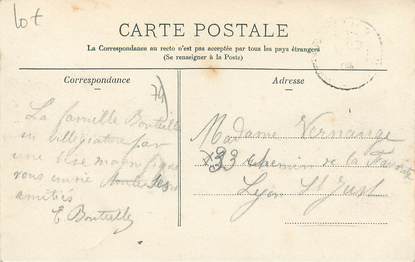 lot
CARTE POSTALE
La Correspondance au recto n'est pas acceptée par tous les pays étrangers
(Se renseigner à la Poste)
Correspondance
Adresse
La famille Boutrelle
en villégiature par
une rose magnifique
vous envoie
amitiés
E. Boutrelle
Madame Vernange
33 chemin de la
Lyon St Just